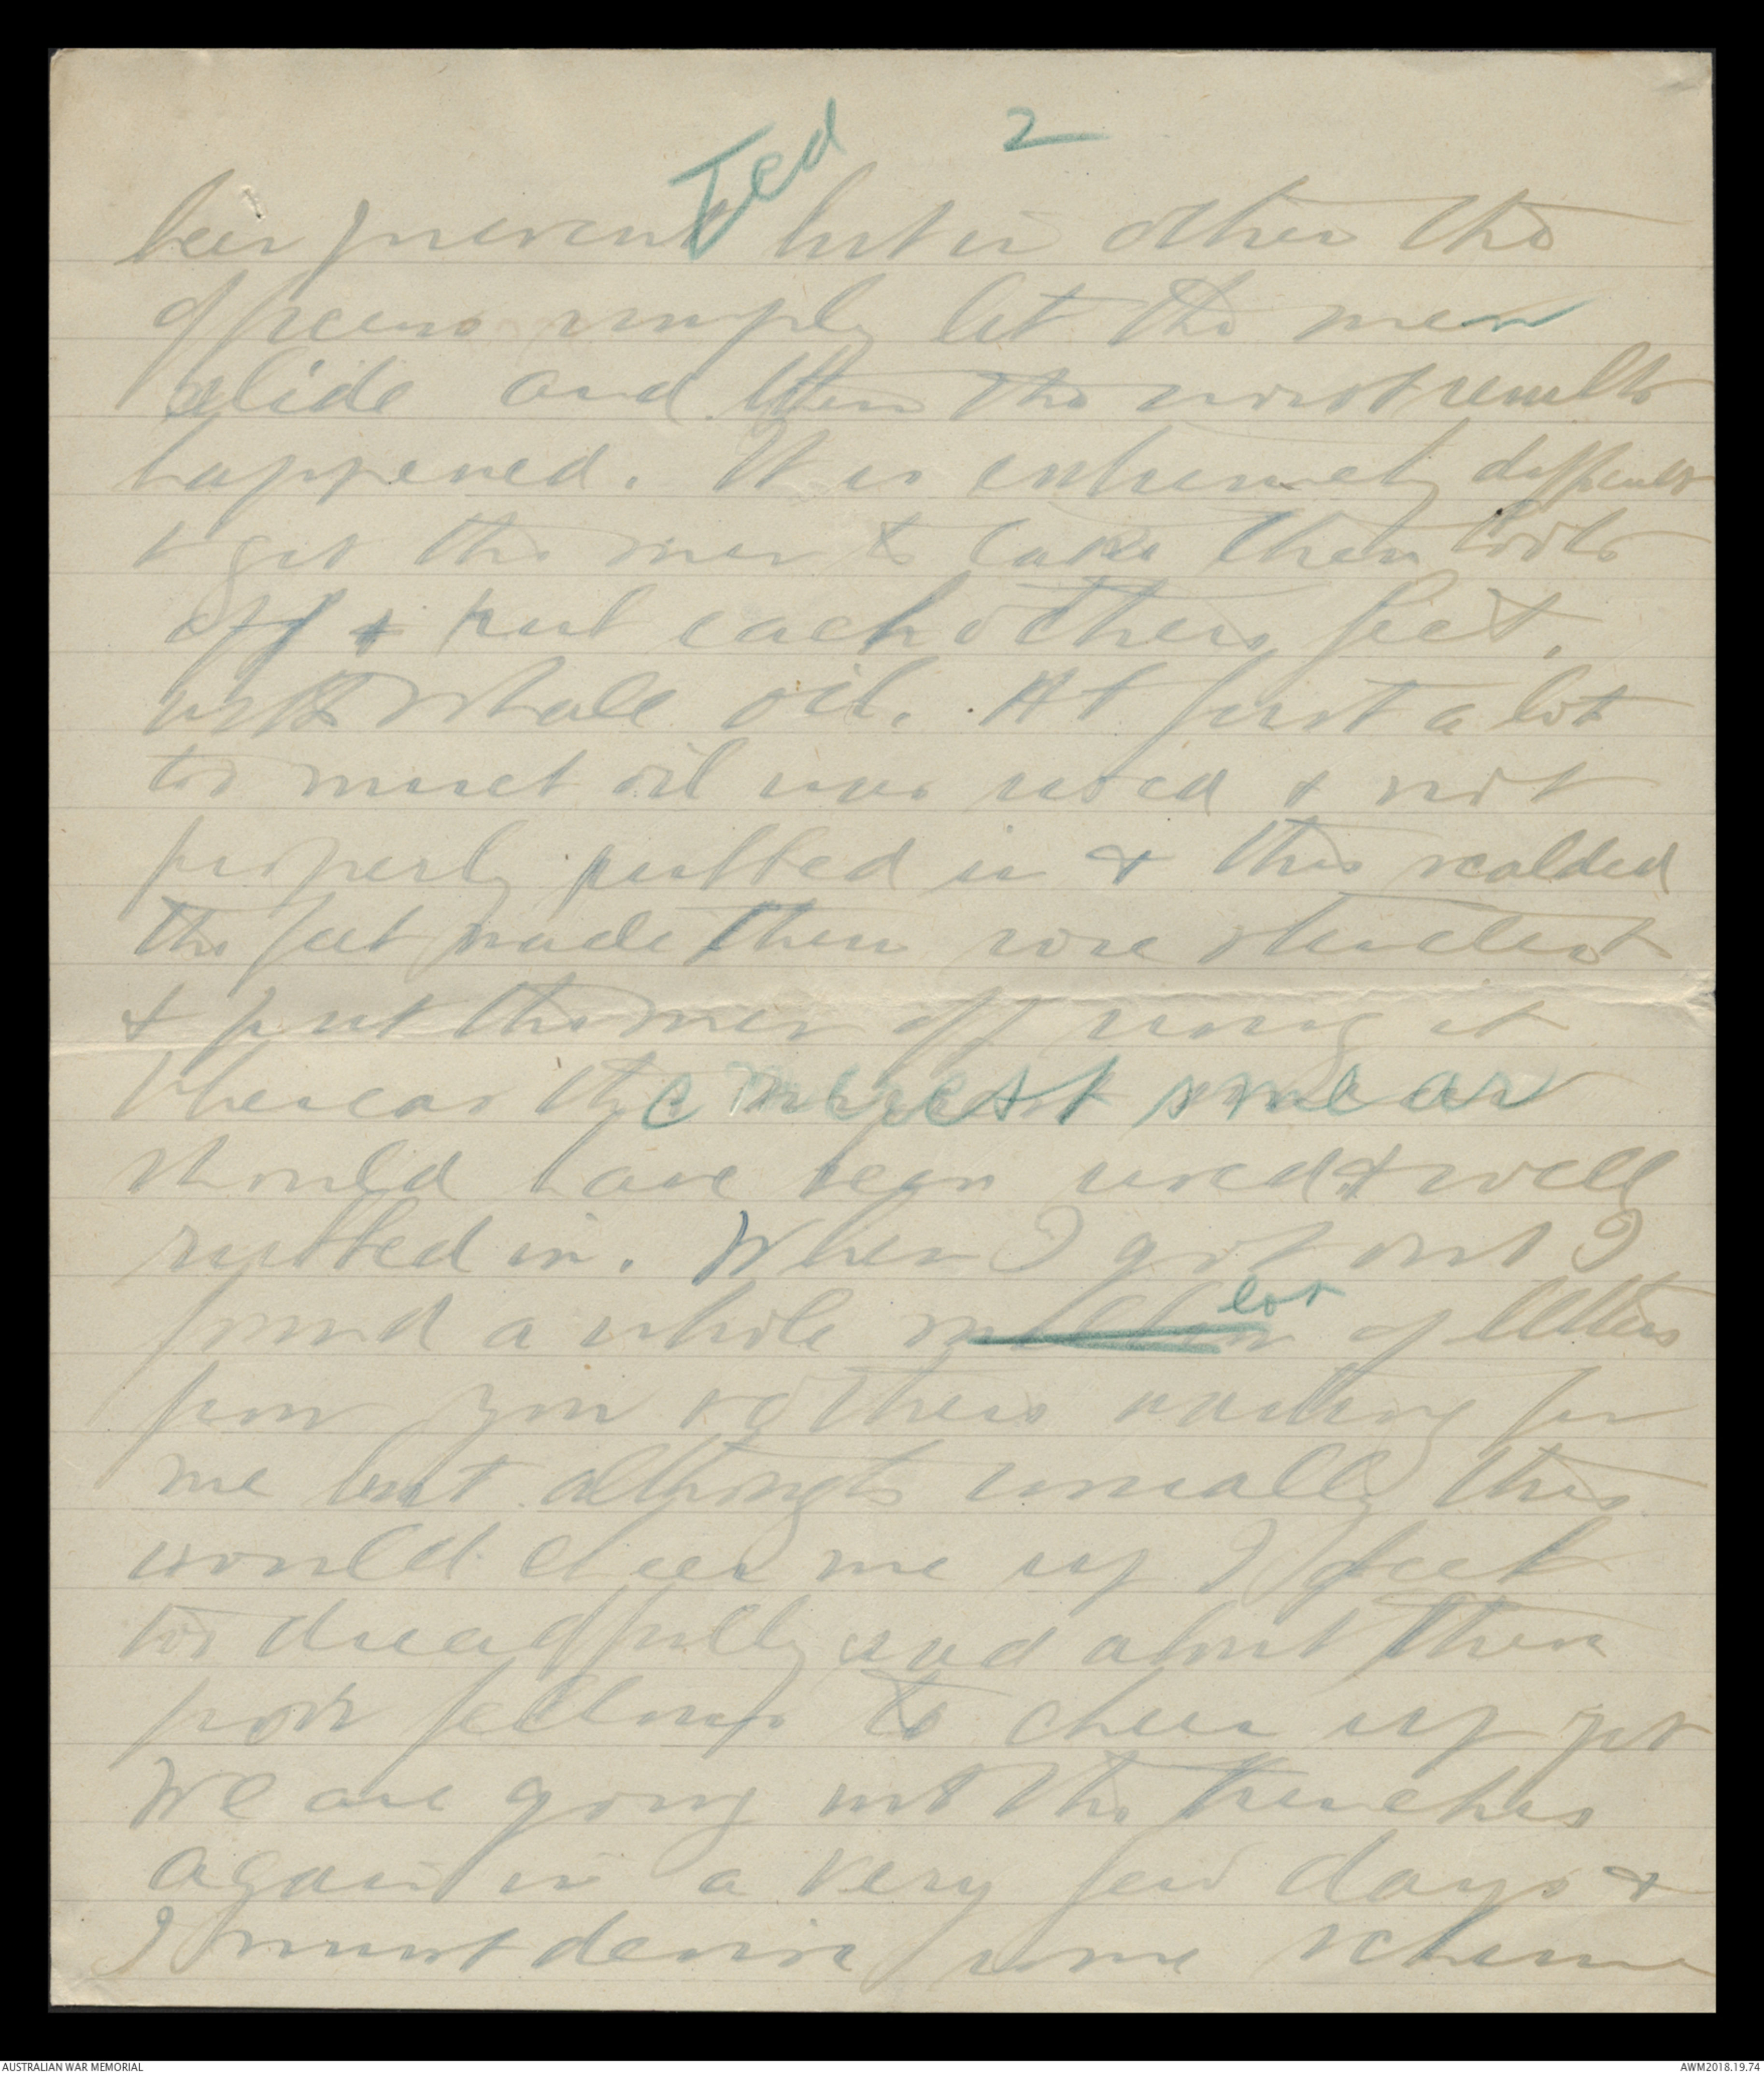 Ted 2
been prevent but in others the
officers simply let the men
slide and then the worst results
happened. It is extremely difficult
to get the men to take their boots
off & rub each others feet.
with whale oil. At first a lot
too much oil was used & not
properly rubbed in & this scalded
the feet made them sore & tender
& put the men off using it
whereas the merest smear
should have been used & well
rubbed in. When I got out I
found a whole lot of letters
from you & others waiting for
me but although usually this
would cheer me up I feel
too dreadfully sad about these
poor fellows to cheer up yet
We are going into the trenches
again in a very few days &
I must devise some scheme
AUSTRALIAN WAR MEMORIAL
AWM2018.19.74